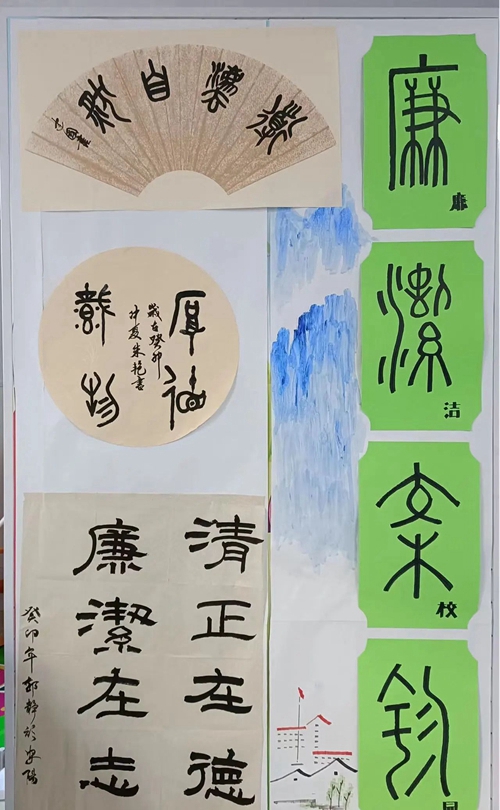 自
厚德
載物
歲在癸卯
仲夏朱艳書
清正在德
廉潔在志
癸卯年郭静於安陽
廉
廉
潔
洁
校
校